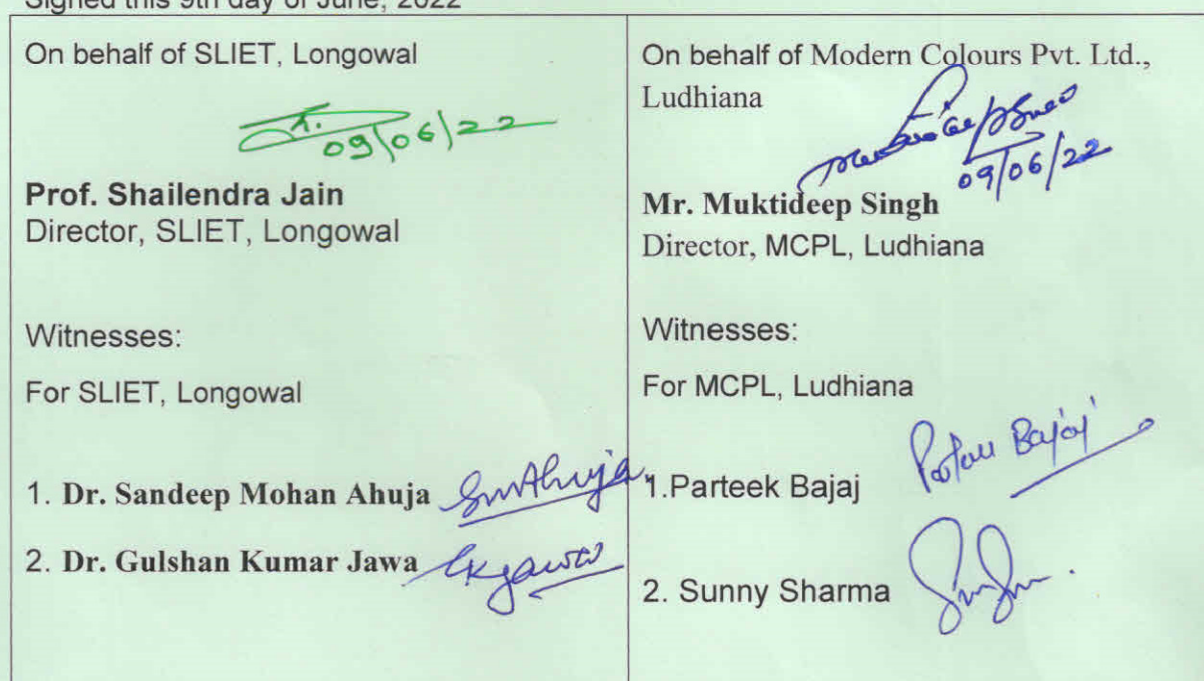 Signed this 9th day of June, 2022
On behalf of SLIET, Longowal
09/06/22
Prof. Shailendra Jain
Director, SLIET, Longowal
Witnesses:
For SLIET, Longowal
1. Dr. Sandeep Mohan Ahuja SmAhuja
2. Dr. Gulshan Kumar Jawa
On behalf of Modern Colours Pvt. Ltd.,
Ludhiana
09/06/22
Mr. Muktideep Singh
Director, MCPL, Ludhiana
Witnesses:
For MCPL, Ludhiana
1.Parteek Bajaj Bajaj
2. Sunny Sharma